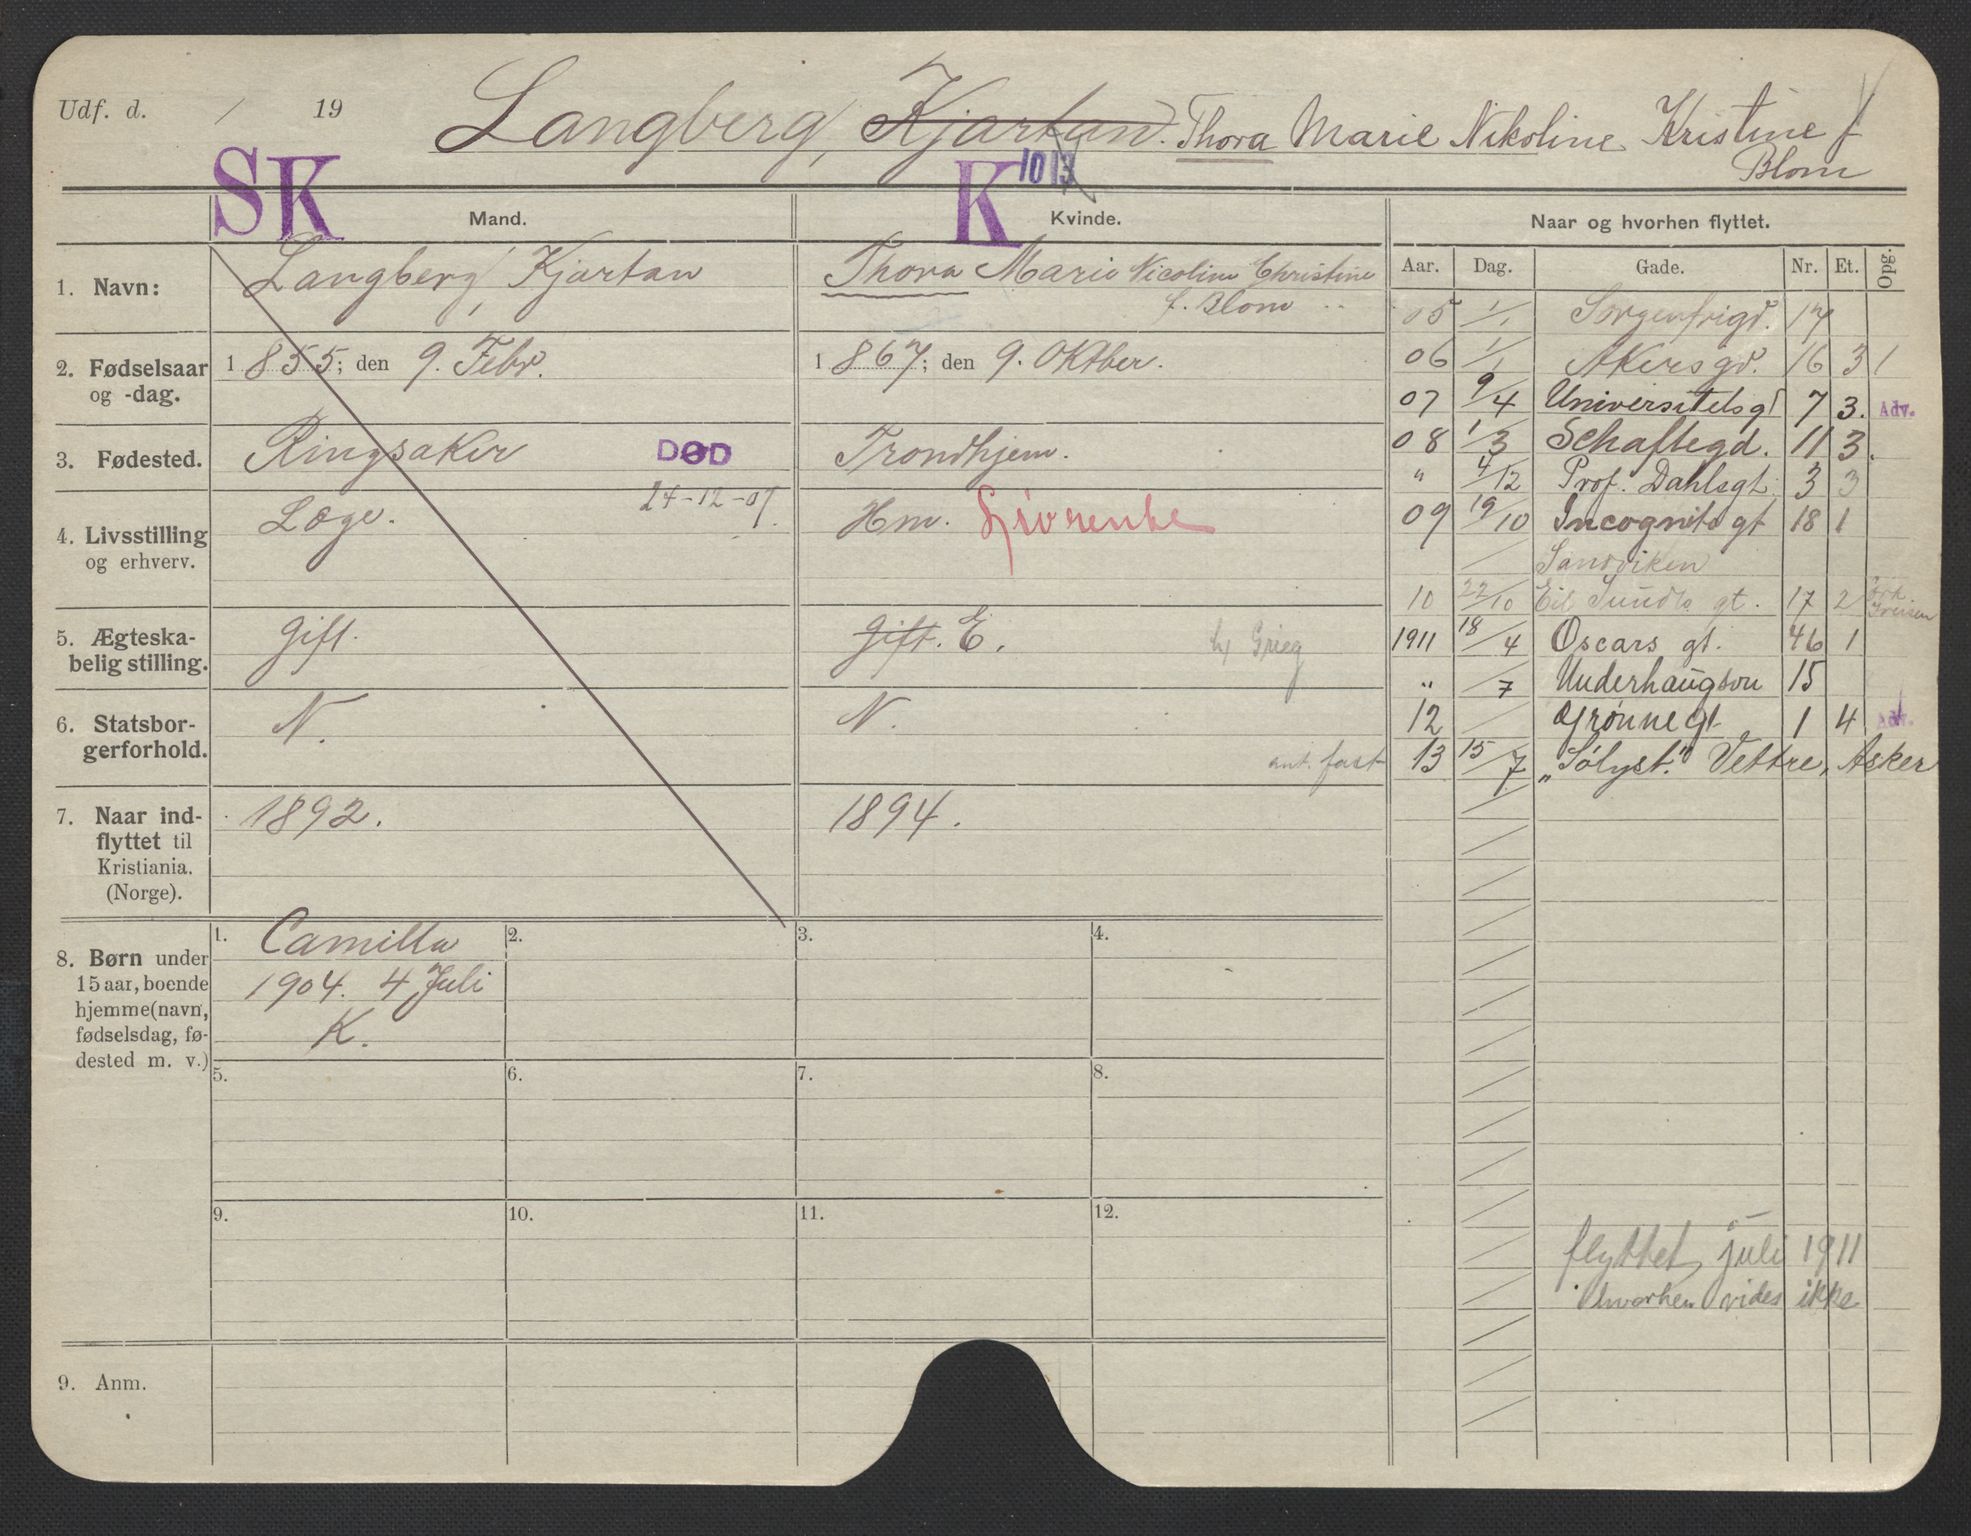 Udf. d. / 19
Langberg, Kjartan. Thora Marie Nikoline Kristine f
Blom
SK
K
10 13
Mand.
Kvinde.
Naar og hvorhen flyttet.
Aar. Dag. Gade. Nr. Et. Opg.
1. Navn:
Langberg, Kjartan
Thora Marie Nicoline Christine
f. Blom
2. Fødselsaar
og -dag.
1 855; den 9. Febr.
1 867; den 9. Oktber.
3. Fødested.
Ringsaker
DØD
24-12-07.
Trondhjem.
4. Livsstilling
og erhverv.
Læge.
Hm. Livrente
5. Ægteska-
belig stilling.
Gift.
Gift. E.
Grieg
6. Statsbor-
gerforhold.
N.
N.
ant. fast
7. Naar ind-
flyttet til
Kristiania.
(Norge).
1892.
1894.
05 1/1 Sorgenfrigd. 17
06 1/1 Akersgd. 16 3 1
07 9/4 Universitetsgd 7 3. Adv.
08 1/3 Schaftegd. 11 3.
" 4/12 Prof. Dahlsgt. 3 3
09 19/10 Incognito gt 18 1
/ Sandviken
10 22/10 Eil Sundts gt. 17 2
1911 18/4 Oscars gt. 46 1
" /7 Underhaugsvn 15
12 / Grønnegt 1 4 Adv.
13 15/7 „Sølyst." Vettre, Asker
8. Børn under
15 aar, boende
hjemme (navn,
fødselsdag, fø-
dested m. v.)
1. Camilla
1904. 4 Juli
K.
2.
3.
4.
5.
6.
7.
8.
9.
10.
11.
12.
flyttet juli 1911
hvorhen vides ikke
9. Anm.